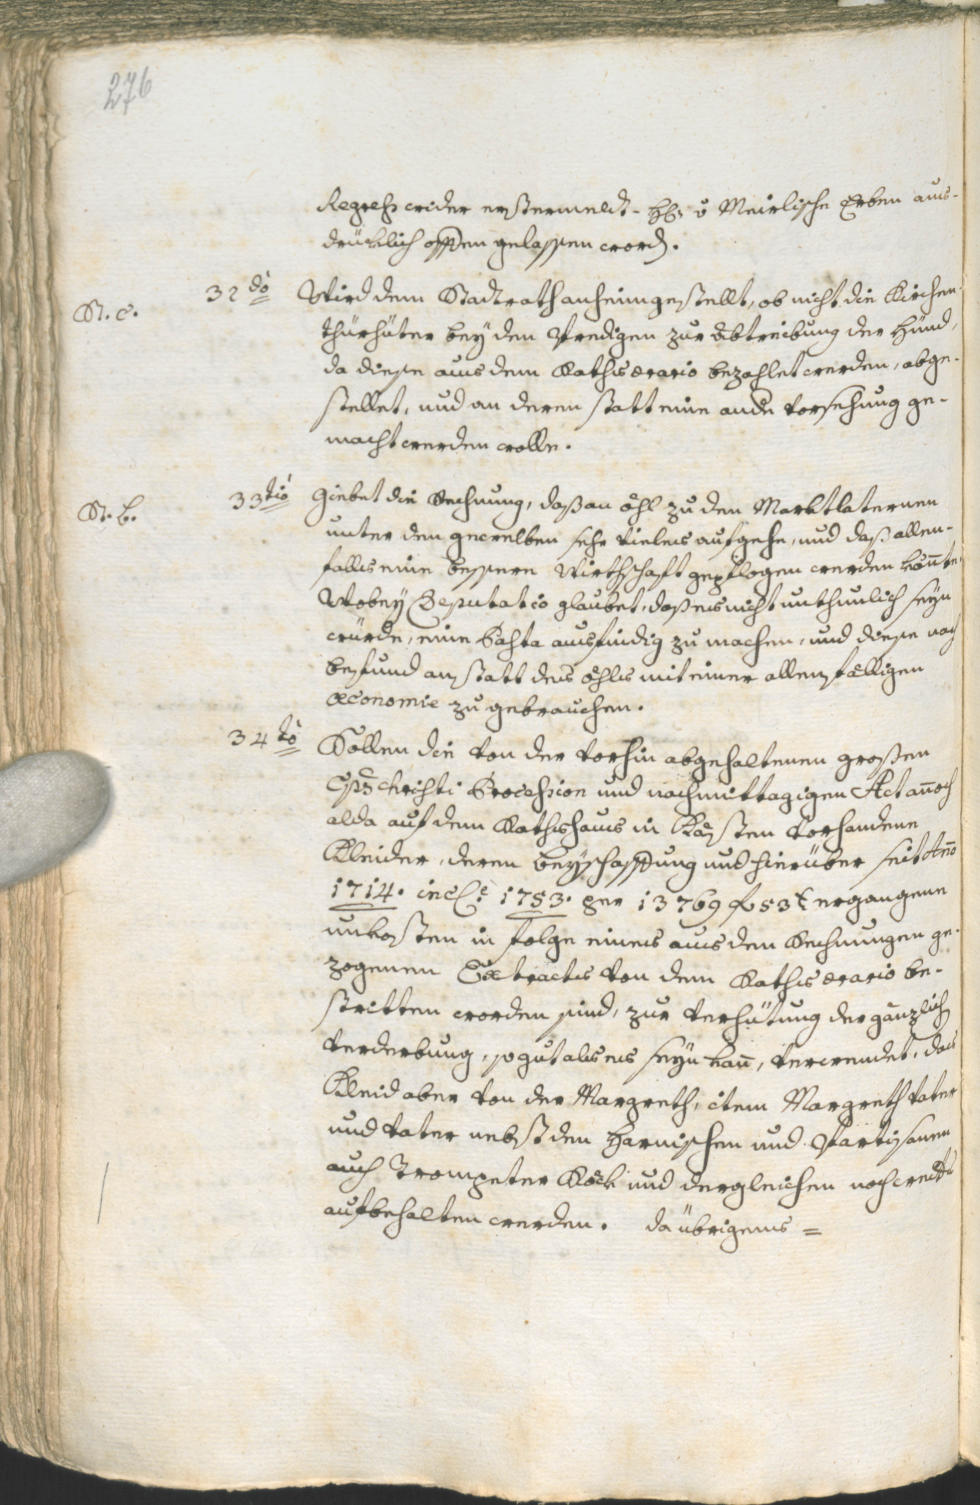 276
Regreß wider erstermeldt- H: v Meirlische Erben aus-
drücklich offen gelassen word.
St. C. 32do Wird dem Stadtrath anheimgestellt, ob nicht die Kirchen
thürhüter bey den Predigen zur Abtreibung der Hünd,
da diese aus dem Raths ærario bezahlet werden, abge-
stellet, und an deren statt eine ande Vorsehung ge-
macht werden wolle.
St. C. 33tio Giebet die Rechnung, daß an öhl zu den Marktlaternen
unter den gewelben sehr vieles aufgehe, und daß allen-
falls eine bessere Wirthschaft gepflogen werden könnte,
Wobey Deputatio glaubet, daß es nicht unthunlich seyn
würde, eine Pasta ausfindig zu machen, und diese nach
befund anstatt des öhls mit einer allenfälligen
œconomie zu gebrauchen.
34to Sollen die von der vorhin abgehaltenen großen
Corp̄s Christi Procession und nachmittagigen Act annoch
alda auf dem Rathshaus in Kästen vorhandene
Kleider, deren beyschaffung und hierüber seit Anno
1714. incl. 1753. per 13769 f 53 x ergangene
unkosten in folge eines aus den Rechnungen ge-
zogenen Extractes von dem Raths ærario be-
stritten worden sind, zur verhütung der gänzlich
verderbung, so gut als es seyn kañ, verwendet, das
Kleid aber von der Margreth, item Margreth vater
und vater nebst den Harnischen und Partisanen
auch Trompeter Röck und dergleichen noch weiters
aufbehalten werden. da übrigens =